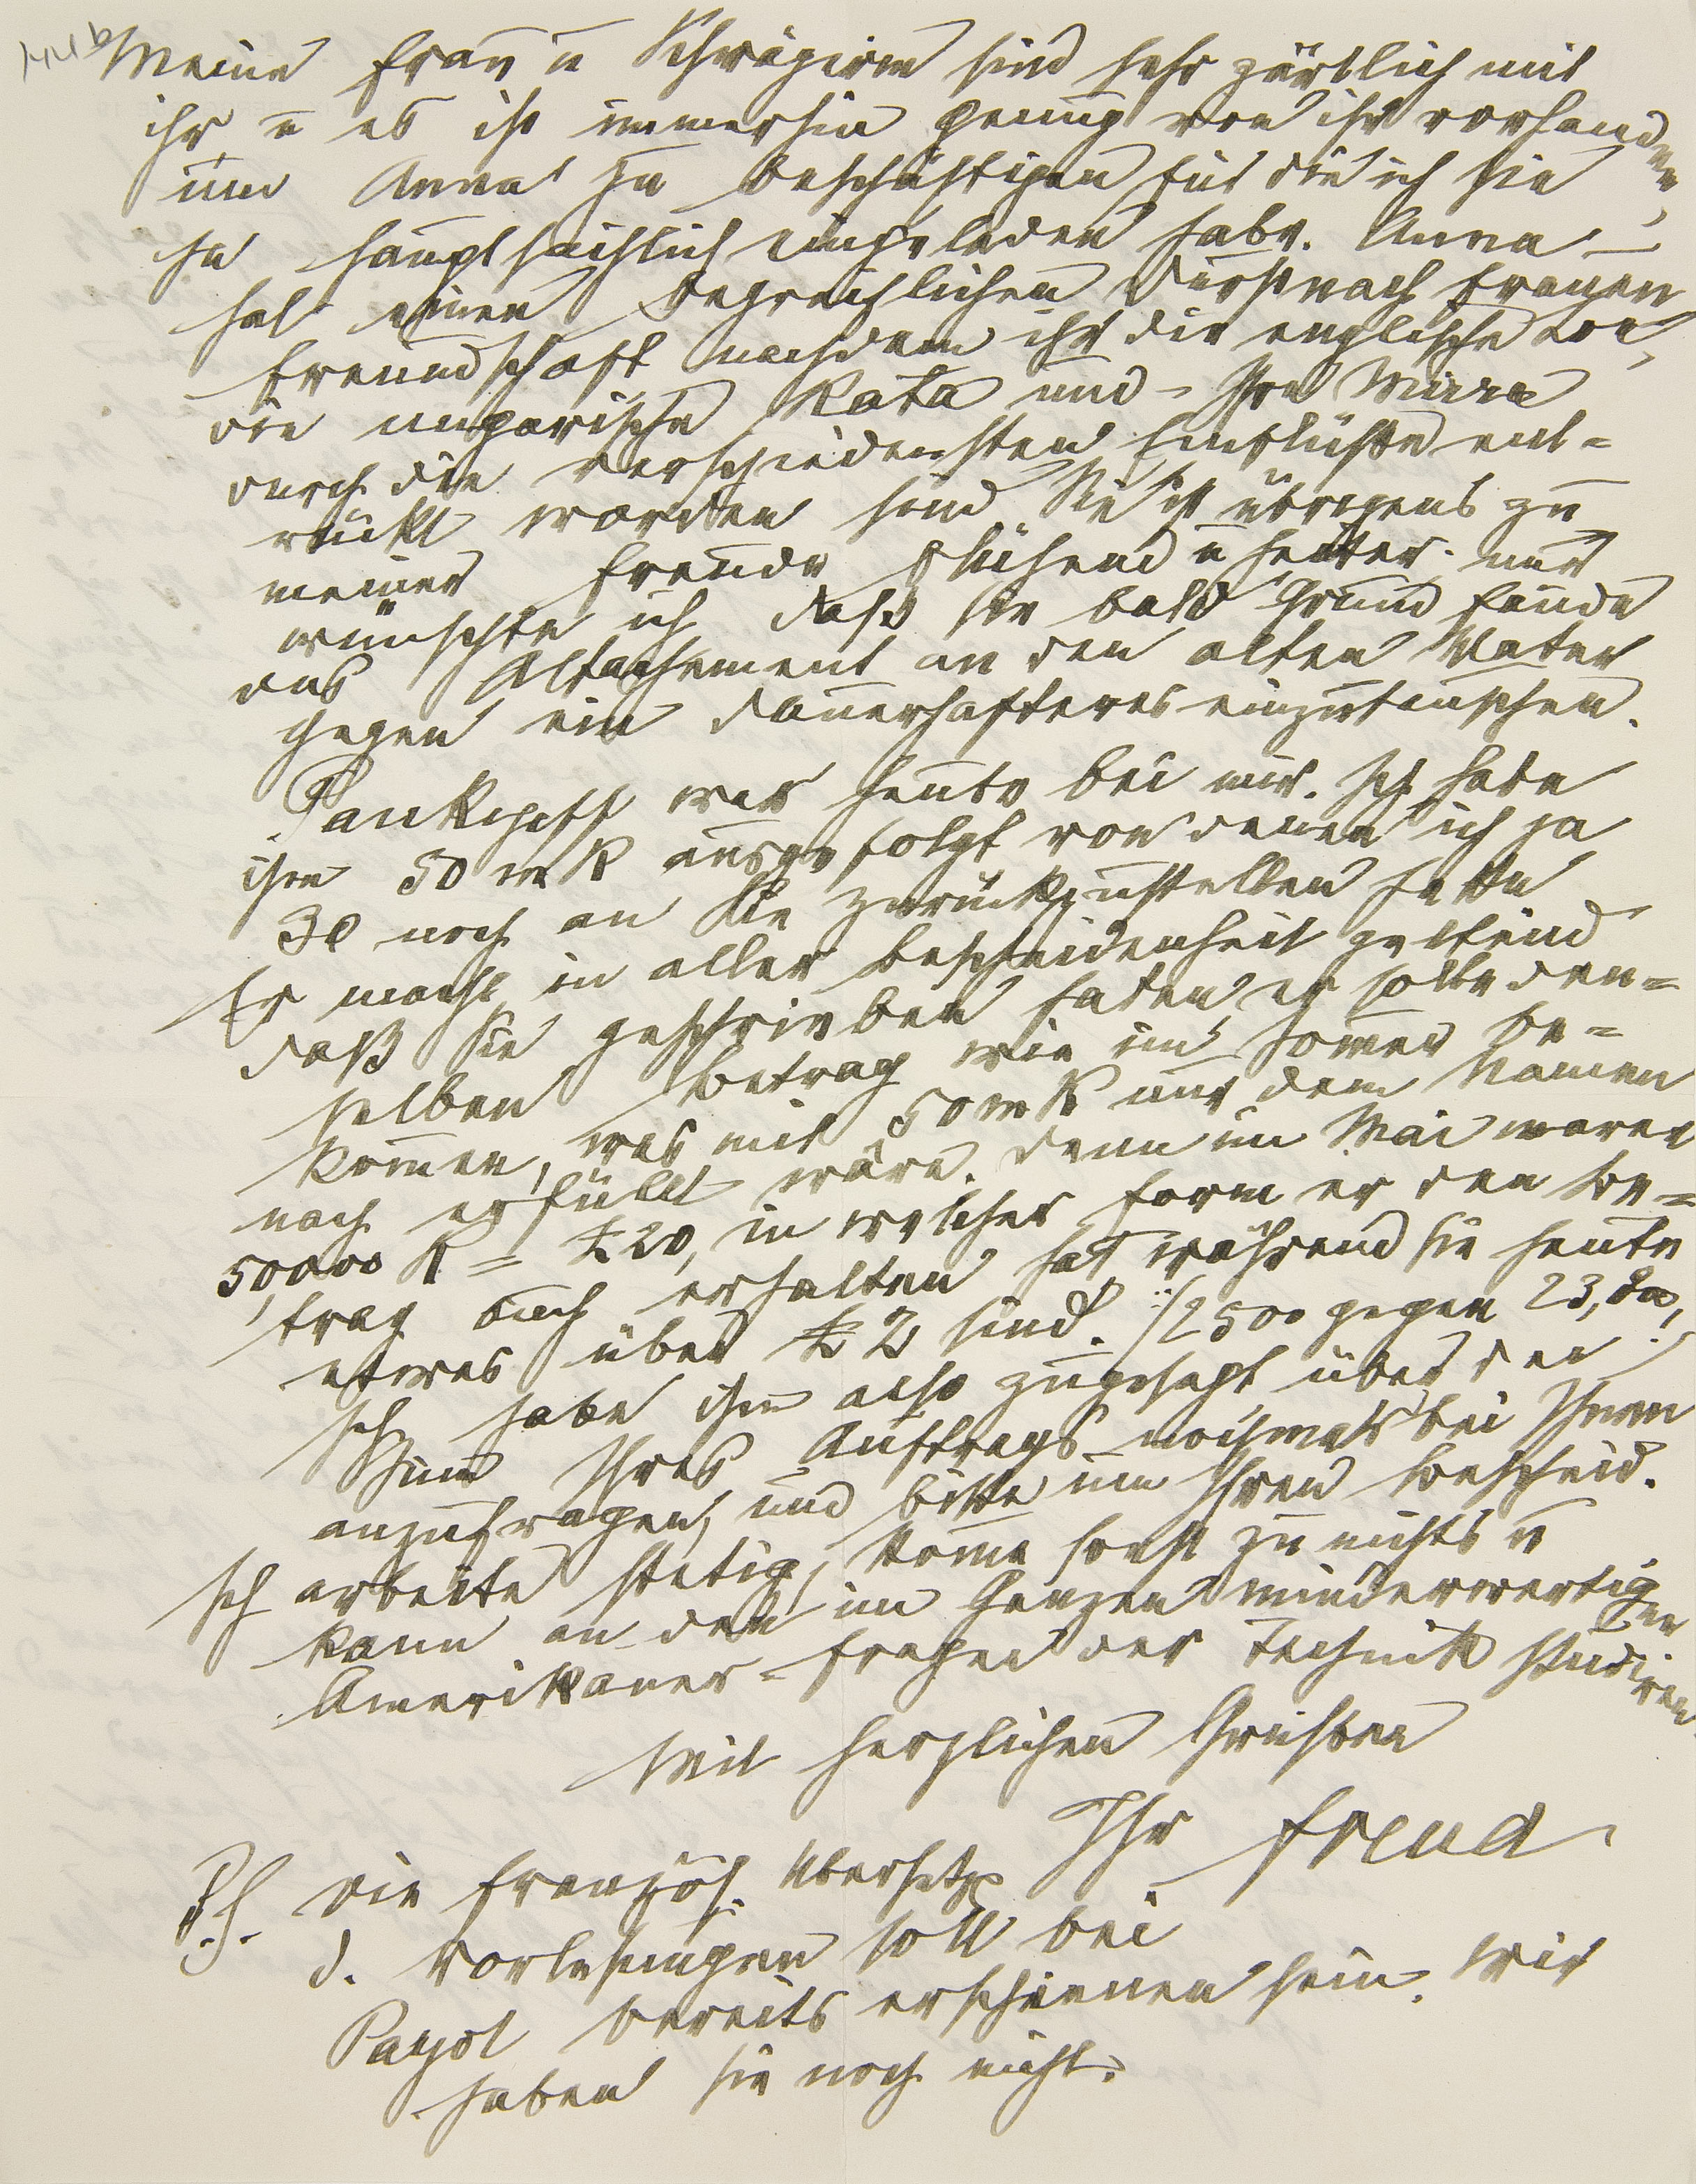 Meine Frau u Schwägerin sind sehr zärtlich mit
ihr u es ist immerhin genug von ihr vorhanden,
um Anna zu beschäftigen für die ich sie
ja hauptsächlich eingeladen habe. Anna
hat einen begreiflichen Durst nach Frauen
freundschaft nachdem ihr die englische Loe,
die ungarische Kata und Ihre Mirra
durch die verschiedensten Einflüsse ent-
rückt worden sind Sie ist übrigens zu
meiner Freude blühend u heiter nur
wünschte ich daß sie bald Grund fände
das Attachement an den alten Vater
gegen ein dauerhafteres einzutauschen.
Pankejeff war heute bei mir. Ich habe
ihm 50 m K ausgefolgt von denen ich ja
30 noch an Sie zurückzustellen hatte
Er macht in aller Bescheidenheit geltend
daß Sie geschrieben haben, er solle den-
selben Betrag wie im Sommer be-
kommen, was mit 50 m K nur dem Namen
nach erfüllt wäre. Denn im Mai waren
50,000 K = £ 20, in welcher Form er den Be-
trag auch erhalten hat während sie heute
etwas über £ 2 sind. :/2500 gegen 23,800!/
Ich habe ihm also zugesagt, über den
Sinn Ihres Auftrags nochmals bei Ihnen
anzufragen, und bitte um Ihren Bescheid.
Ich arbeite stetig, komme sonst zu nichts u
kann an den im Ganzen minderwertigen
Amerikaner-Fragen der Technik studiren
Mit herzlichen Grüßen
Ihr Freud
P.S. Die französ. Übersetzg
d. Vorlesungen soll bei
Payot bereits erschienen sein. Wir
haben sie noch nicht.